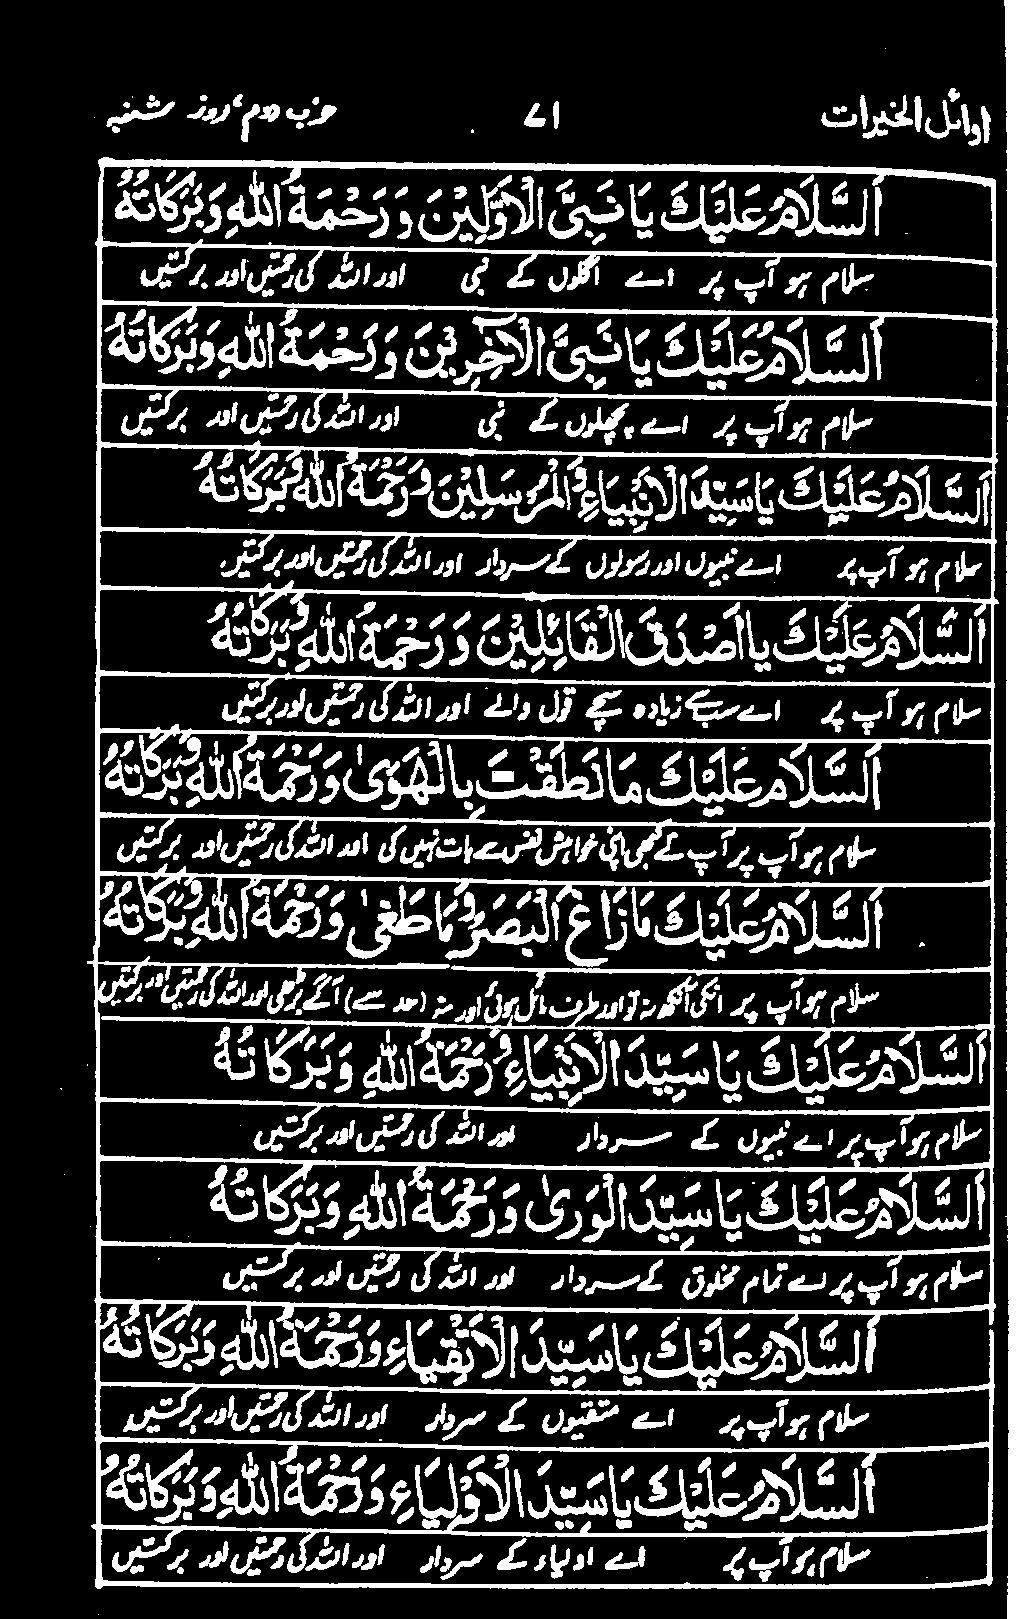 اوائل الخیرات ۷۱ حزب دوم، روز شنبہ
اَلسَّلَامُ عَلَيْكَ يَا نَبِيَّ الْاَوَّلِيْنَ وَرَحْمَةُ اللهِ وَبَرَكَاتُهُ
سلام ہو آپ پر اے اگلوں کے نبی اور اللہ کی رحمتیں اور برکتیں
اَلسَّلَامُ عَلَيْكَ يَا نَبِيَّ الْآخِرِيْنَ وَرَحْمَةُ اللهِ وَبَرَكَاتُهُ
سلام ہو آپ پر اے پچھلوں کے نبی اور اللہ کی رحمتیں اور برکتیں
اَلسَّلَامُ عَلَيْكَ يَا سَيِّدَ الْاَنْبِيَاءِ وَالْمُرْسَلِيْنَ وَرَحْمَةُ اللهِ وَبَرَكَاتُهُ
سلام ہو آپ پر اے نبیوں اور رسولوں کے سردار اور اللہ کی رحمتیں اور برکتیں
اَلسَّلَامُ عَلَيْكَ يَا اَصْدَقَ الْقَائِلِيْنَ وَرَحْمَةُ اللهِ وَبَرَكَاتُهُ
سلام ہو آپ پر اے سب سے زیادہ سچے قول والے اور اللہ کی رحمتیں اور برکتیں
اَلسَّلَامُ عَلَيْكَ مَا نَطَقْتَ بِالْهَوٰى وَرَحْمَةُ اللهِ وَبَرَكَاتُهُ
سلام ہو آپ پر آپ نے کبھی اپنی خواہش نفس سے بات نہیں کی اور اللہ کی رحمتیں اور برکتیں
اَلسَّلَامُ عَلَيْكَ مَا زَاغَ الْبَصَرُ وَمَا طَغٰى وَرَحْمَةُ اللهِ وَبَرَكَاتُهُ
سلام ہو آپ پر انکی آنکھ نہ تو اور طرف مائل ہوئی اور نہ (حد سے) آگے بڑھی اور اللہ کی رحمتیں اور برکتیں
اَلسَّلَامُ عَلَيْكَ يَا سَيِّدَ الْاَنْبِيَاءِ وَرَحْمَةُ اللهِ وَبَرَكَاتُهُ
سلام ہو آپ پر اے نبیوں کے سردار اور اللہ کی رحمتیں اور برکتیں
اَلسَّلَامُ عَلَيْكَ يَا سَيِّدَ الْوَرٰى وَرَحْمَةُ اللهِ وَبَرَكَاتُهُ
سلام ہو آپ پر اے تمام مخلوق کے سردار اور اللہ کی رحمتیں اور برکتیں
اَلسَّلَامُ عَلَيْكَ يَا سَيِّدَ الْاَتْقِيَاءِ وَرَحْمَةُ اللهِ وَبَرَكَاتُهُ
سلام ہو آپ پر اے متقیوں کے سردار اور اللہ کی رحمتیں اور برکتیں
اَلسَّلَامُ عَلَيْكَ يَا سَيِّدَ الْاَوْلِيَاءِ وَرَحْمَةُ اللهِ وَبَرَكَاتُهُ
سلام ہو آپ پر اے اولیاء کے سردار اور اللہ کی رحمتیں اور برکتیں